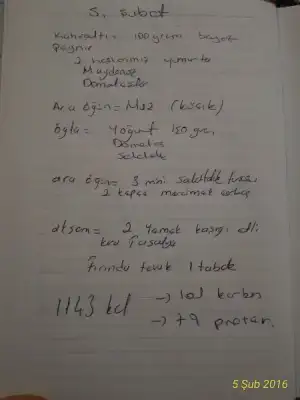 5. Şubat
Kahvaltı = 100 gram beyaz
peynir
2 haşlanmış yumurta
Maydanoz
Domates
Ara öğün = Muz (küçük)
öğle = Yoğurt 150 gram
Domates
Salatalık
ara öğün = 3 mini salatalık turşu
2 kepçe mercimek çorba
akşam = 2 Yemek kaşığı etli
kuru fasulye
Fırında tavuk 1 tabak
1143 kcl → 101 karbon
→ 79 protein
5 Şub 2016